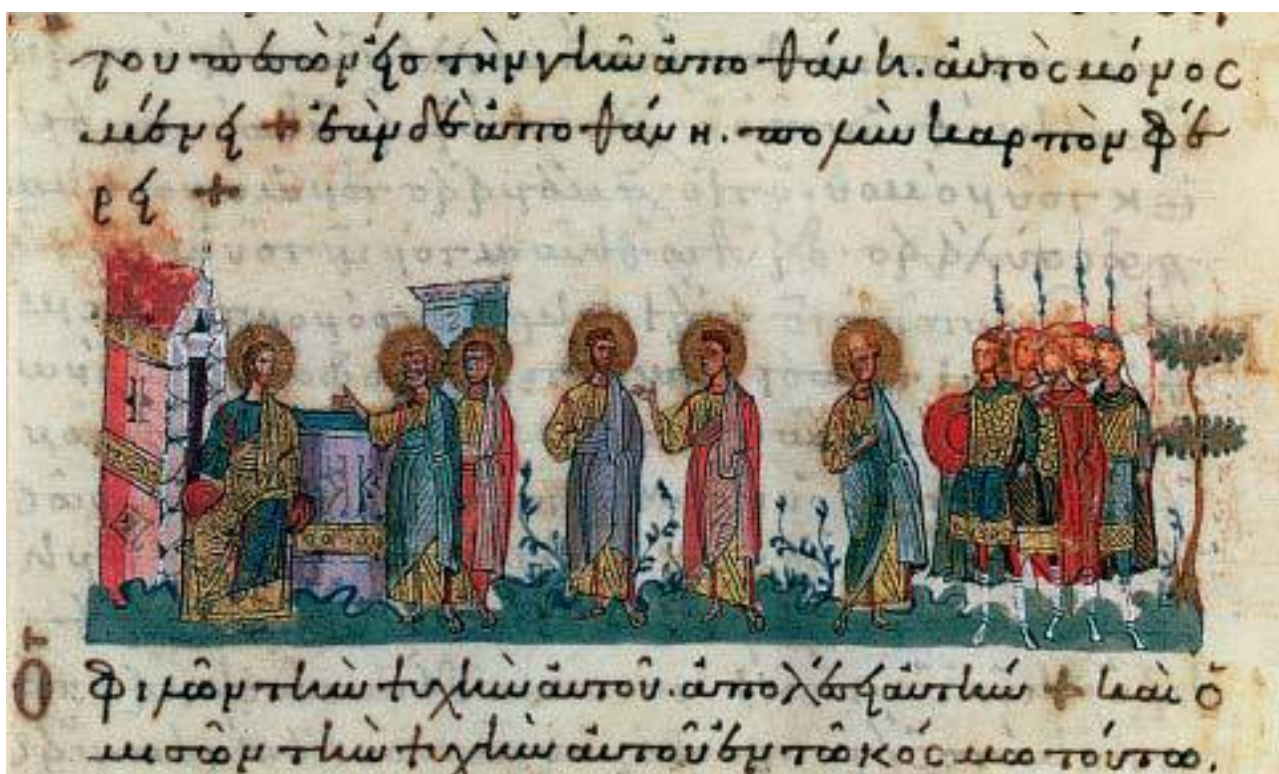 του πεσὼν εἰς τὴν γῆν ἀποθάνη. αὐτὸς μόνος
μένει + ἐὰν δὲ ἀποθάνη. πολὺν καρπὸν φέ
ρει +
Ὁ φιλῶν τὴν ψυχὴν αὐτοῦ. ἀπολέσει αὐτήν + καὶ ὁ
μισῶν τὴν ψυχὴν αὐτοῦ ἐν τῶ κόσμω τούτω.